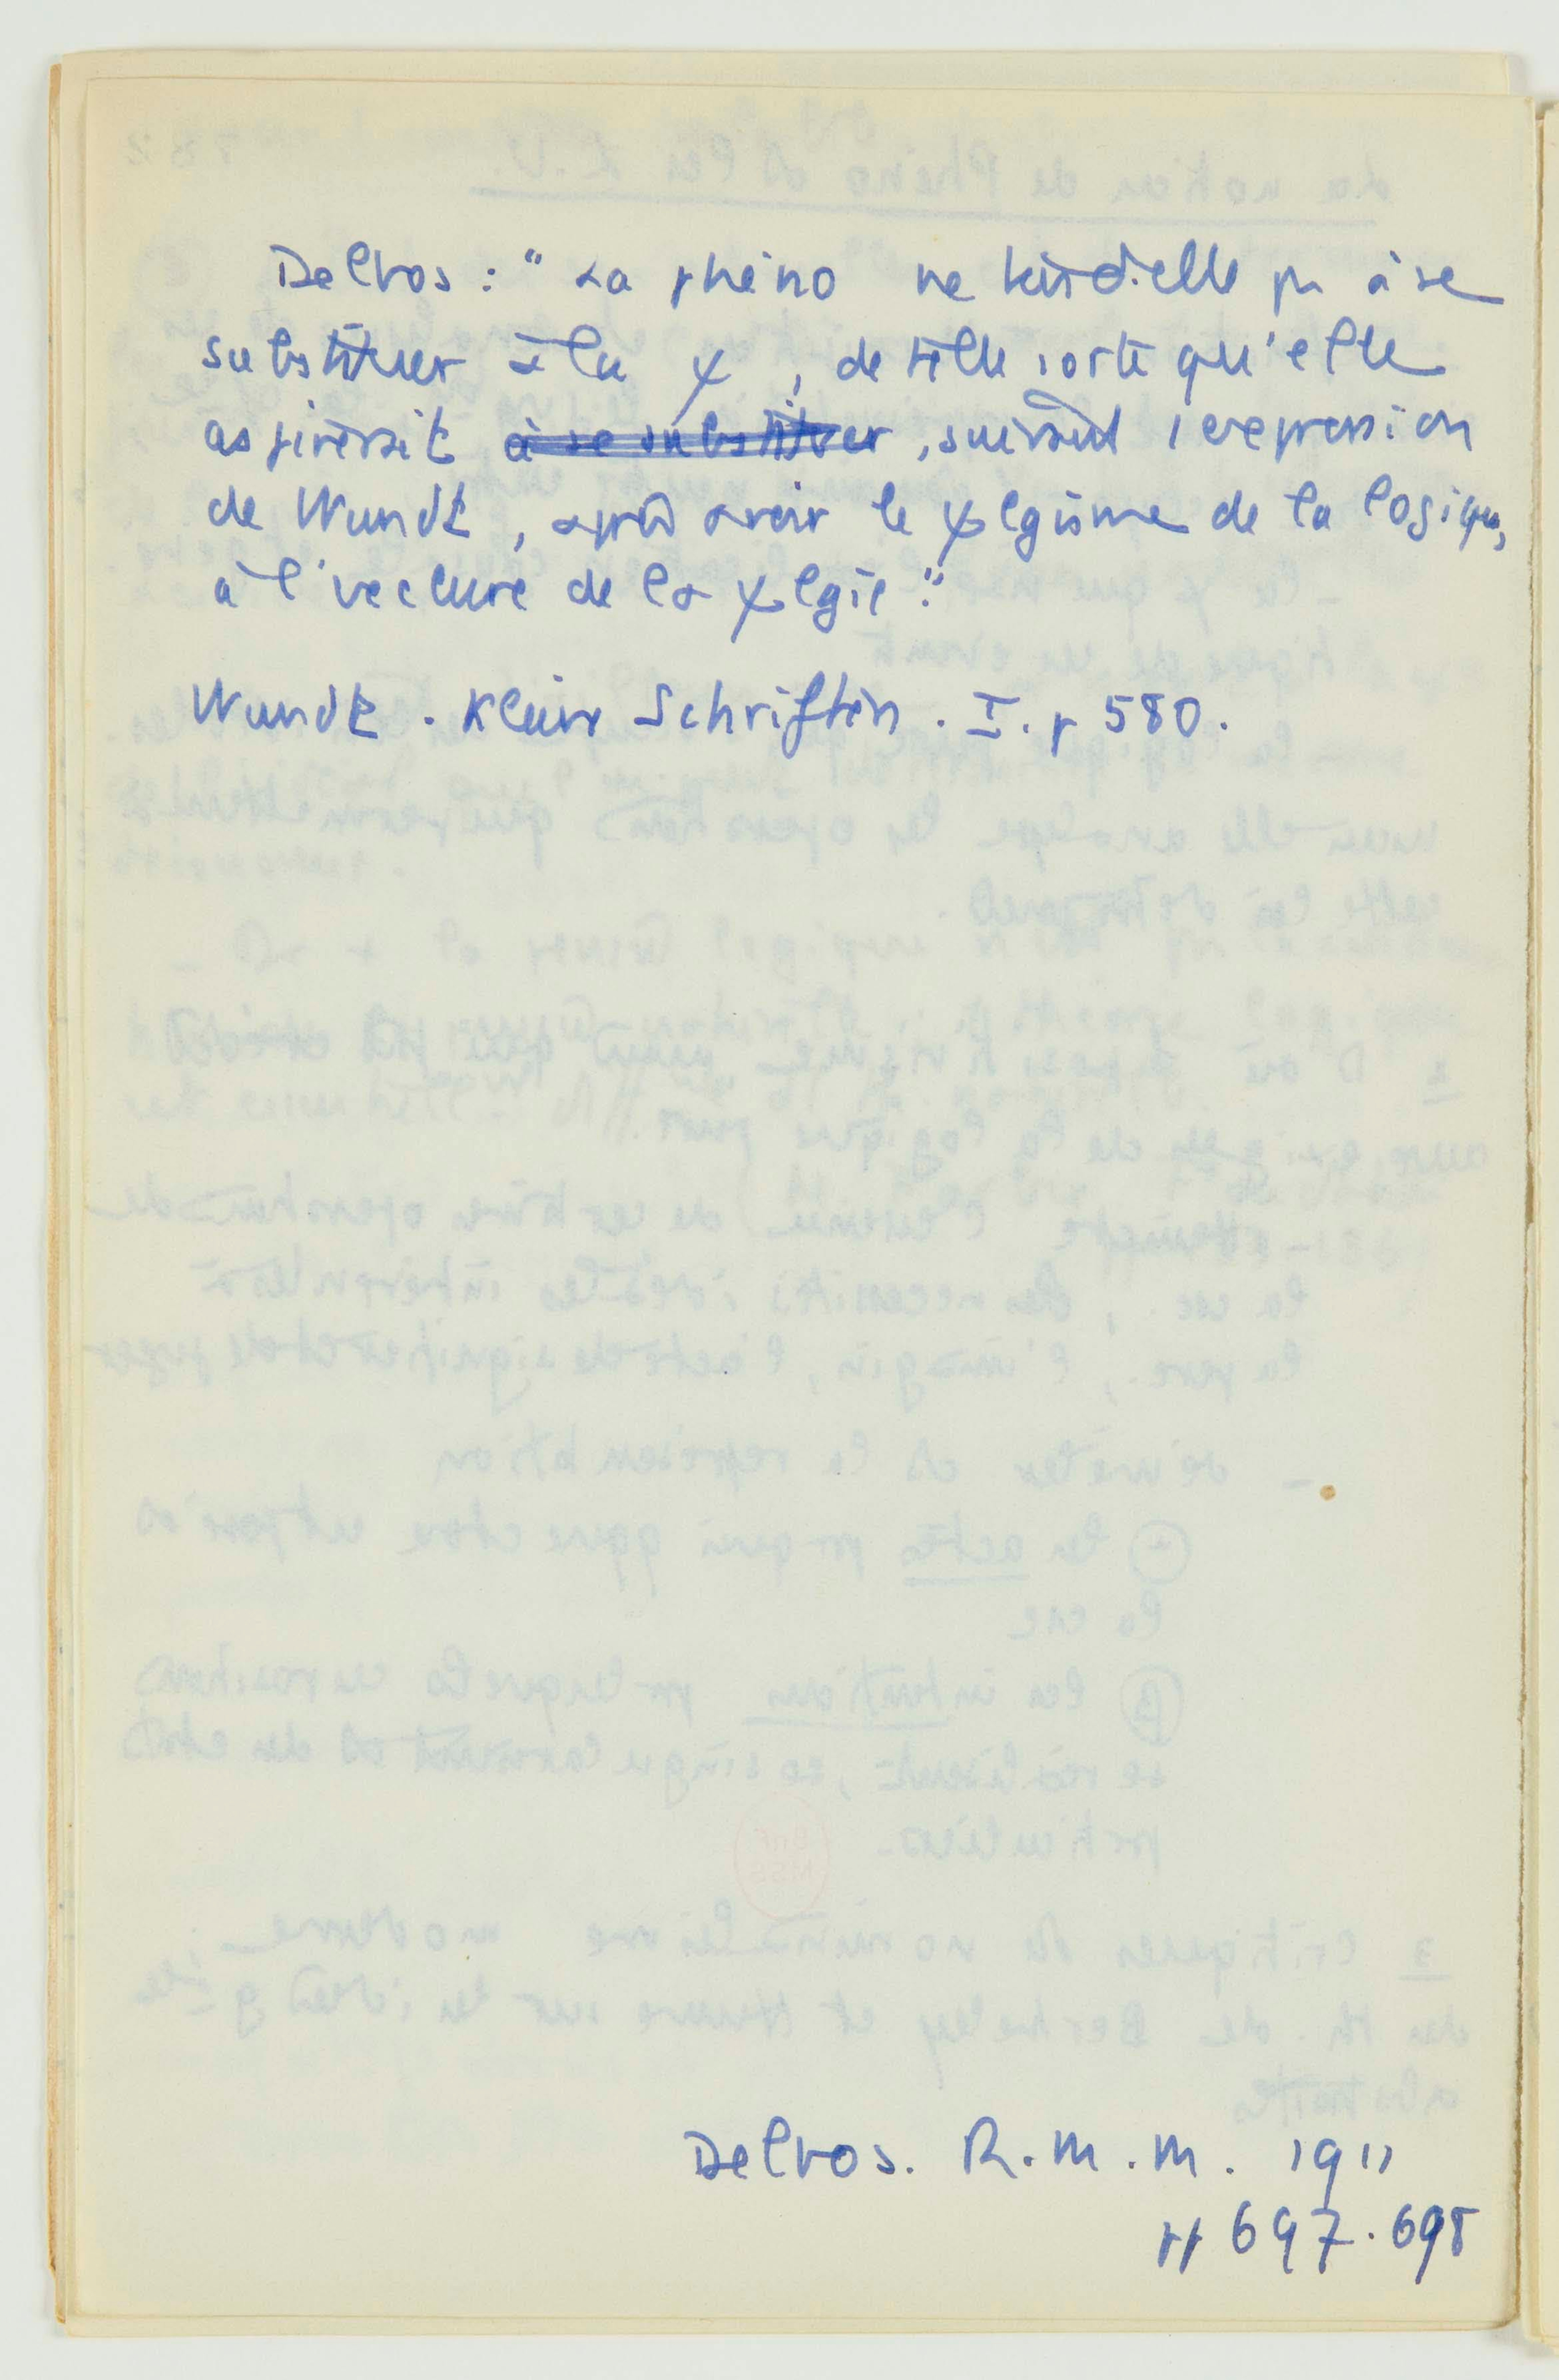 Delbos : " La phéno ne tend-elle pas à se
substituer à la ψ, de telle sorte qu'elle
aspirerait à se substituer, suivant l'expression
de Wundt, après avoir le ψlgisme de la logique,
à l' de la ψlgie."
Wundt. Kleine Schriften. I. p 580.
Delbos. R.M.M. 1911
pp 697.698